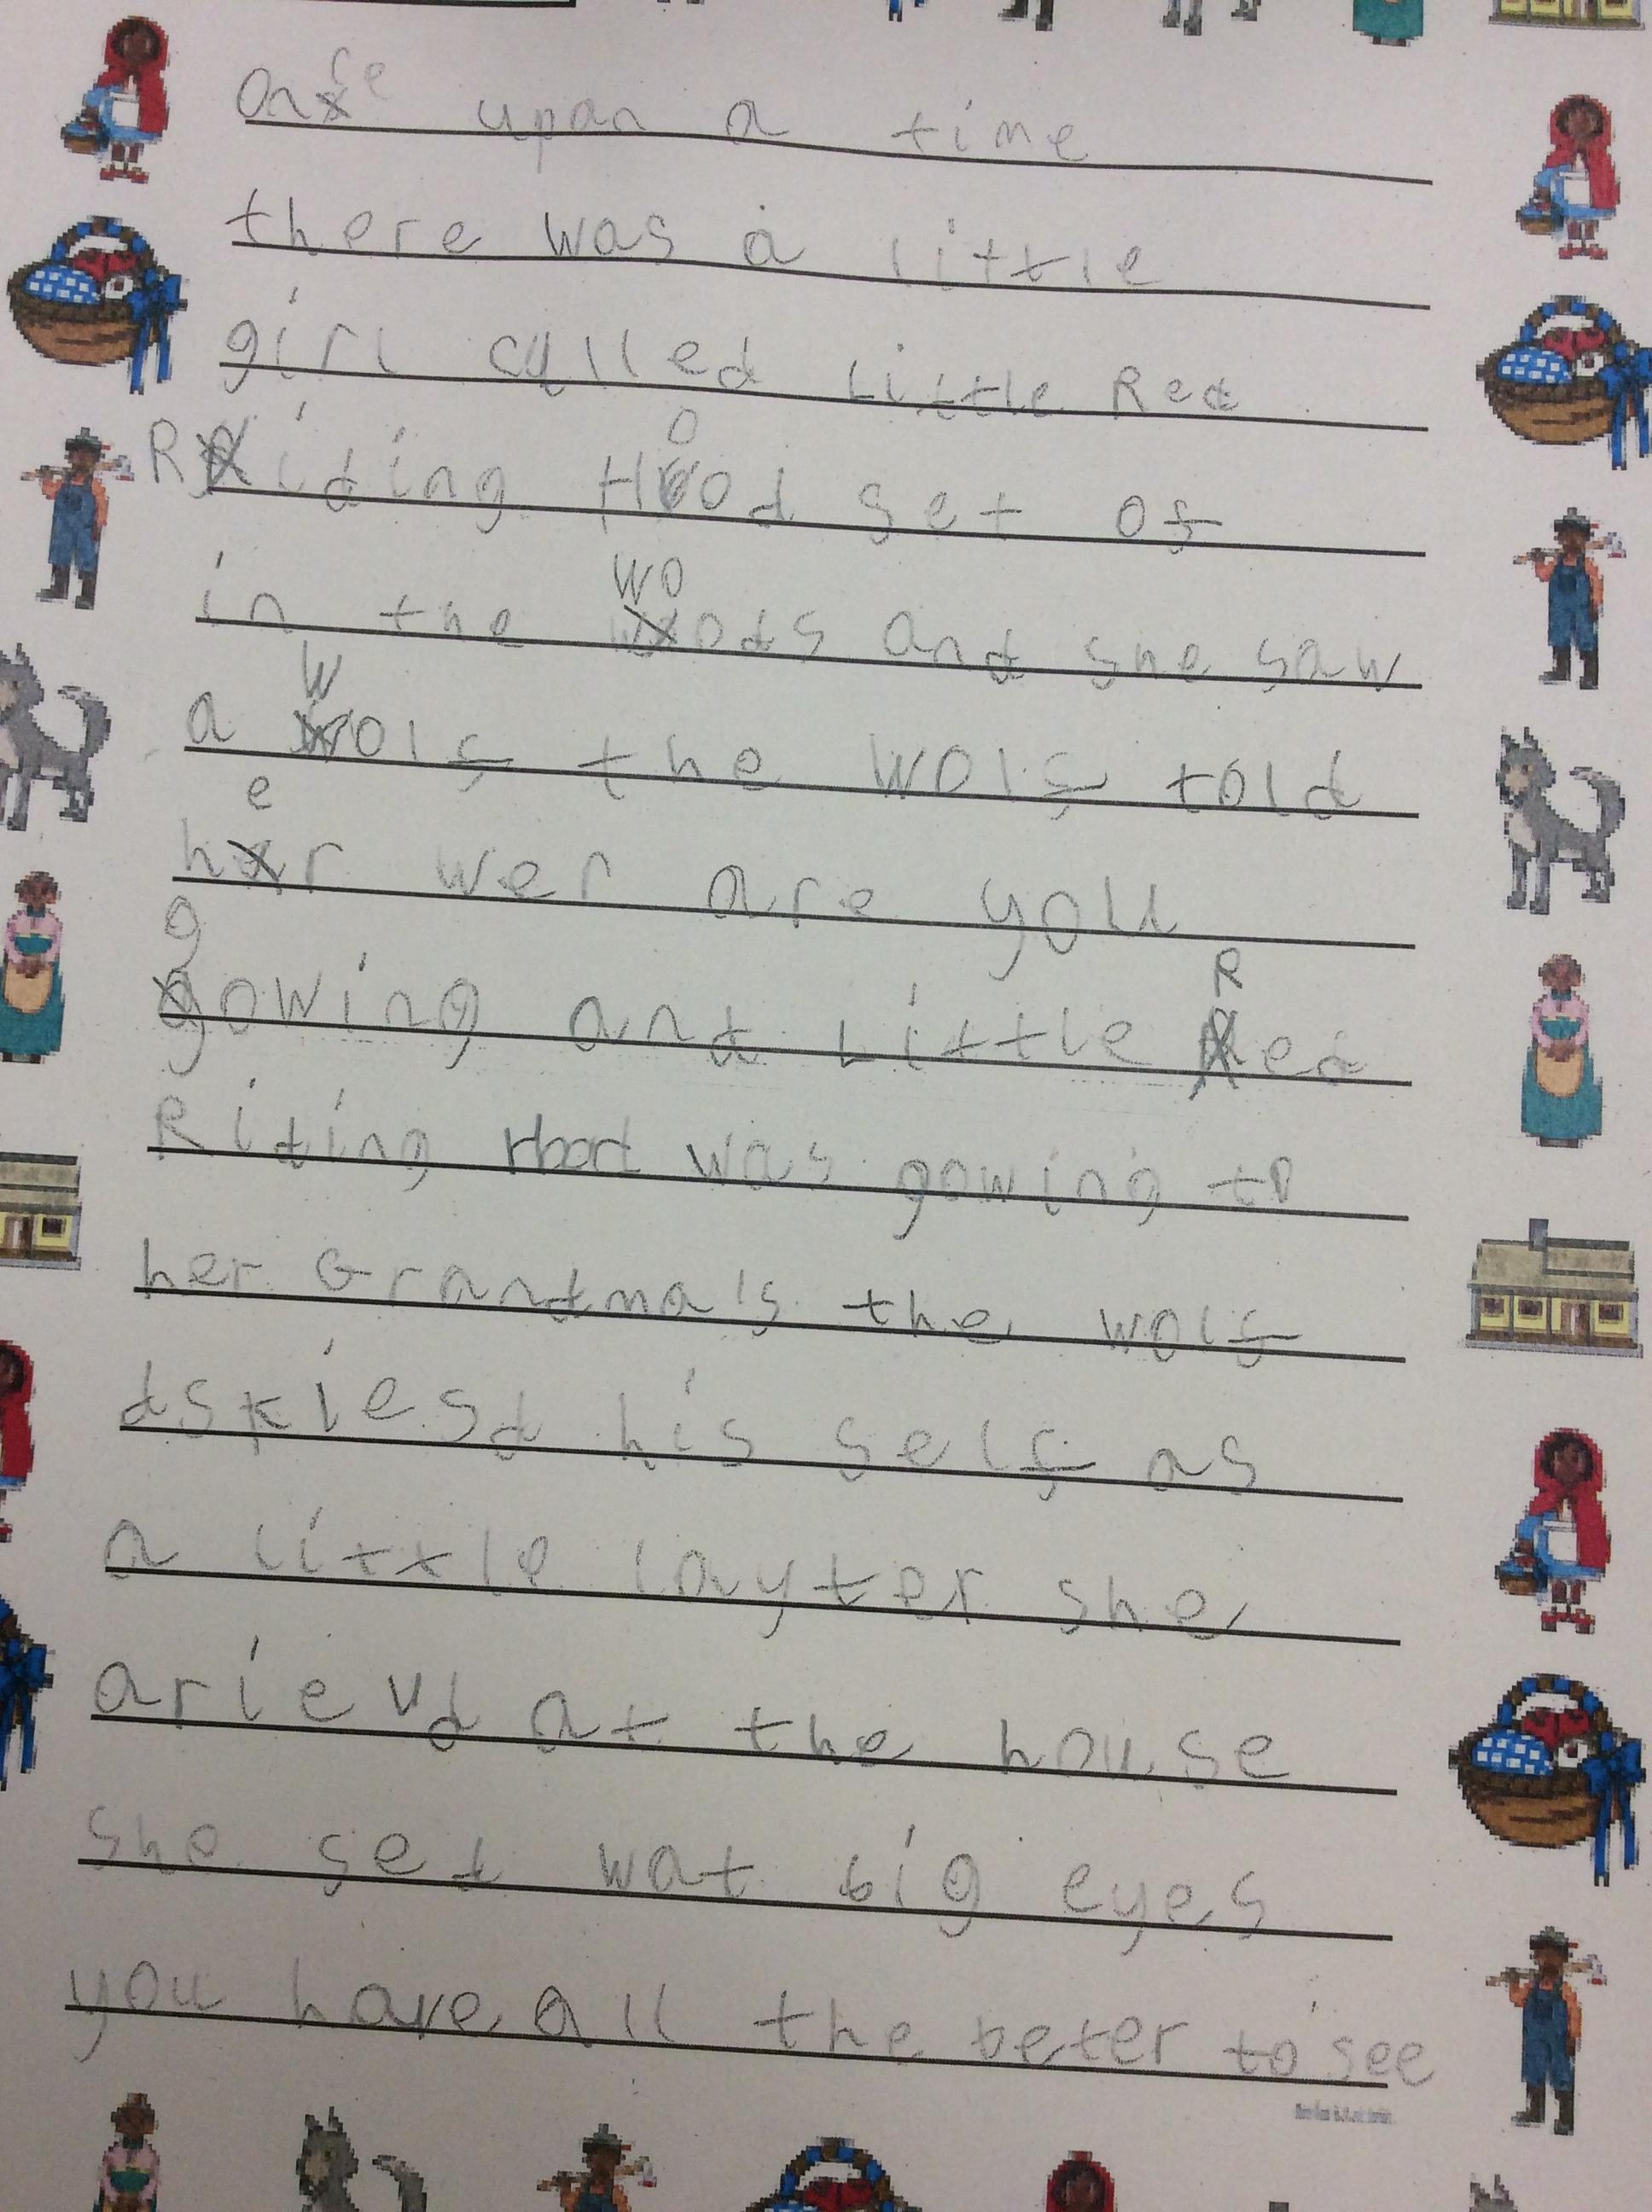 Once upan a time
there was a little
girl called Little Red
Riding Hood set of
in the woods and she saw
a wolf the wolf told
her wer are you
gowing and Little Red
Riding Hood was gowing to
her Grandma's the wolf
dskiesd his self as
a little layter she
arievd at the house
she sed wat big eyes
you have all the beter to see